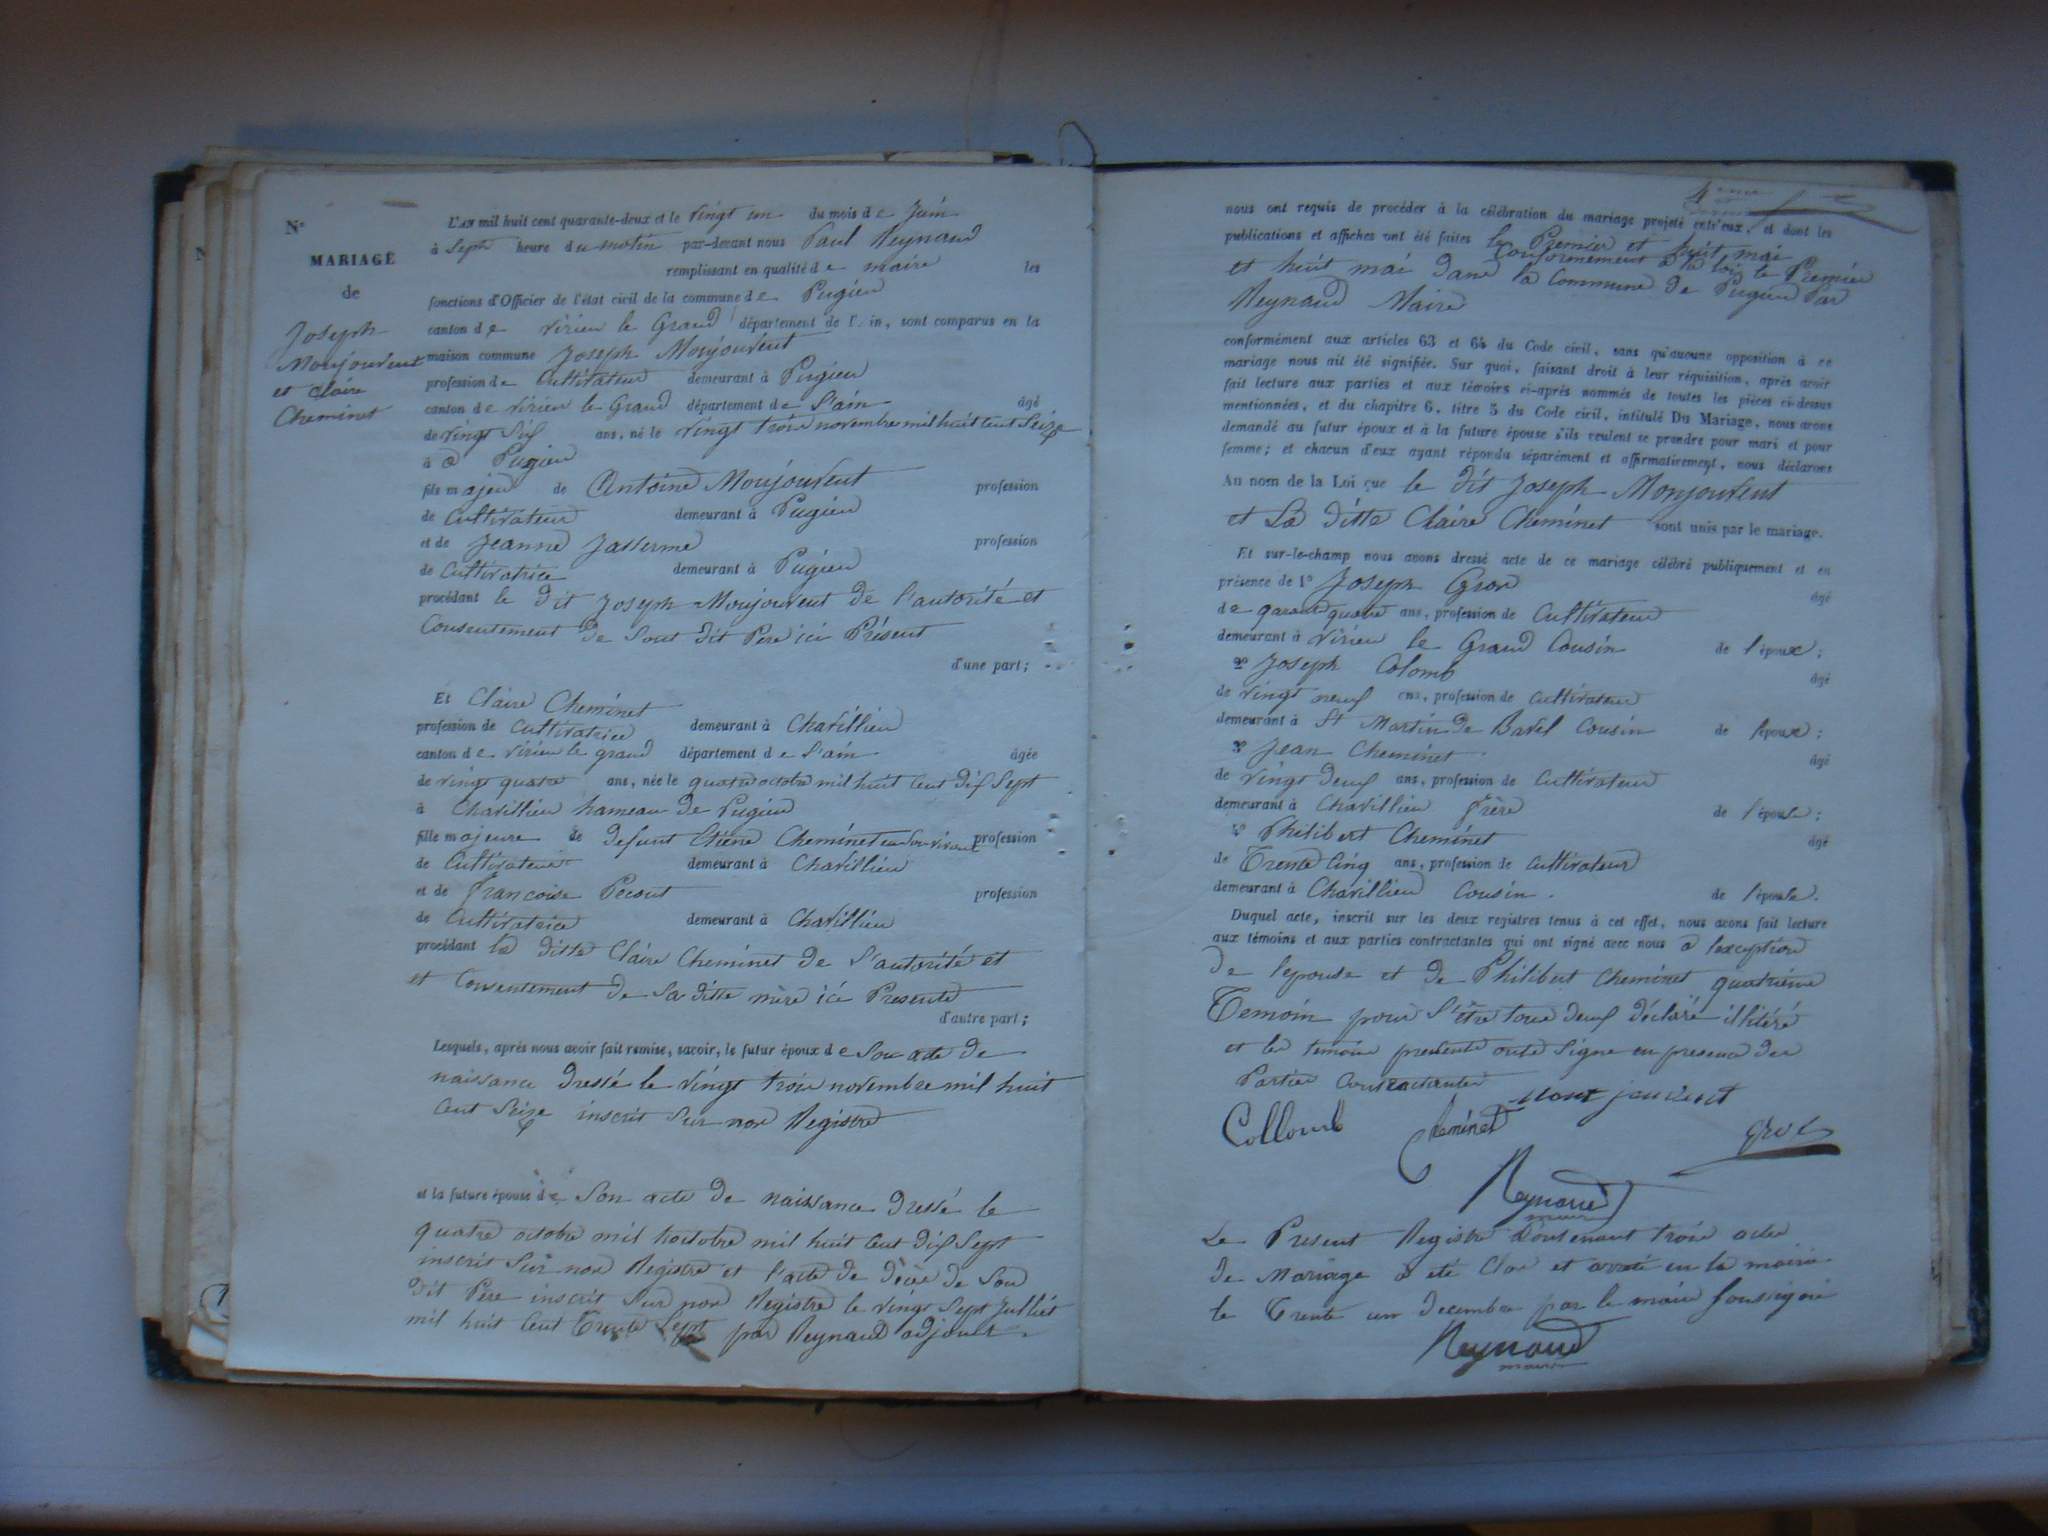 N°
MARIAGE
de
Joseph
Monjouvent
et Claire
Cheminet
L'AN mil huit cent quarante-deux et le vingt un du mois de Juin
à Sept heure du matin par-devant nous Paul Reynaud
remplissant en qualité de maire les
fonctions d'Officier de l'état civil de la commune de Pugieu
canton de virieu le Grand département de l'Ain, sont comparus en la
maison commune Joseph Monjouvent
profession de Cultivateur demeurant à Pugieu
canton de virieu le Grand département de l'ain âgé
de vingt Six ans, né le vingt trois novembre mil huit cent Seize
à Pugieu
fils majeur de Antoine Monjouvent profession
de Cultivateur demeurant à Pugieu
et de Jeanne Jasserme profession
de Cultivatrice demeurant à Pugieu
procédant le dit Joseph Monjouvent de l'autorité et
Consentement de Sont dit Pere ici Présent
d'une part;
Et Claire Cheminet
profession de Cultivatrice demeurant à Chavillieu
canton de virieu le grand département de l'ain âgée
de vingt quatre ans, née le quatre octobre mil huit Cent dix Sept
à Chavillieu hameau de Pugieu
fille majeure de defunt Etiene Cheminet en Son vivant profession
de Cultivateur demeurant à Chavillieu
et de francoise Pecout profession
de Cultivatrice demeurant à Chavillieu
procédant la ditte Claire Cheminet de l'autorité et
et Consentement de Sa ditte mère ici Presente
d'autre part;
Lesquels, après nous avoir fait remise, savoir, le futur époux de Son acte de
naissance dressé le vingt trois novembre mil huit
Cent Seize inscrit Sur nos Registre
et la future épouse de Son acte de naissance dressé le
quatre octobre mil octobre mil huit Cent dix Sept
inscrit Sur nos Registre et l'acte de décès de Son
dit Père inscrit Sur nos Registre le vingt Sept Julliet
mil huit Cent Trente Sept par Reynaud adjoint
nous ont requis de procéder à la célébration du mariage projeté entr'eux, et dont les
publications et affiches ont été faites le Premier et huit mai
Conformement a la loi le Premier
et huit mai dans la Commune de Pugieu Par
Reynaud Maire
conformément aux articles 63 et 64 du Code civil, sans qu'aucune opposition à ce
mariage nous ait été signifiée. Sur quoi, faisant droit à leur réquisition, après avoir
fait lecture aux parties et aux témoins ci-après nommés de toutes les pièces ci-dessus
mentionnées, et du chapitre 6, titre 5 du Code civil, intitulé Du Mariage, nous avons
demandé au futur époux et à la future épouse s'ils veulent se prendre pour mari et pour
femme; et chacun d'eux ayant répondu séparément et affirmativement, nous déclarons
Au nom de la Loi que le dit Joseph Monjouvent
et La ditte Claire Cheminet sont unis par le mariage.
Et sur-le-champ nous avons dressé acte de ce mariage célébré publiquement et en
présence de 1° Joseph Gros âgé
de garante quatre ans, profession de Cultivateur
demeurant à virieu le Grand Cousin de l'époux;
2° Joseph Colomb âgé
de vingt neuf ans, profession de Cultivateur
demeurant à St Martin de Bavel Cousin de l'époux;
3° Jean Cheminet âgé
de vingt deux ans, profession de Cultivateur
demeurant à Chavillieu frère de l'épouse;
4° Philibert Cheminet âgé
de Trente Cinq ans, profession de Cultivateur
demeurant à Chavillieu Cousin de l'épouse.
Duquel acte, inscrit sur les deux registres tenus à cet effet, nous avons fait lecture
aux témoins et aux parties contractantes qui ont signé avec nous a l'exception
de l'epouse et de Philibert Cheminet quatrieme
Temoin pour S'être tous deux déclaré illitéré
et les temoin presente onts Signe en presence des
Parties Contractantes
mont jouvent
Collomb Cheminet Gros
Reynaud
maire
Le Present Registre Contenant trois actes
de Mariage a eté Clos et arreté en la mairie
le Trente un decembre par le maire Soussigné
Reynaud
maire